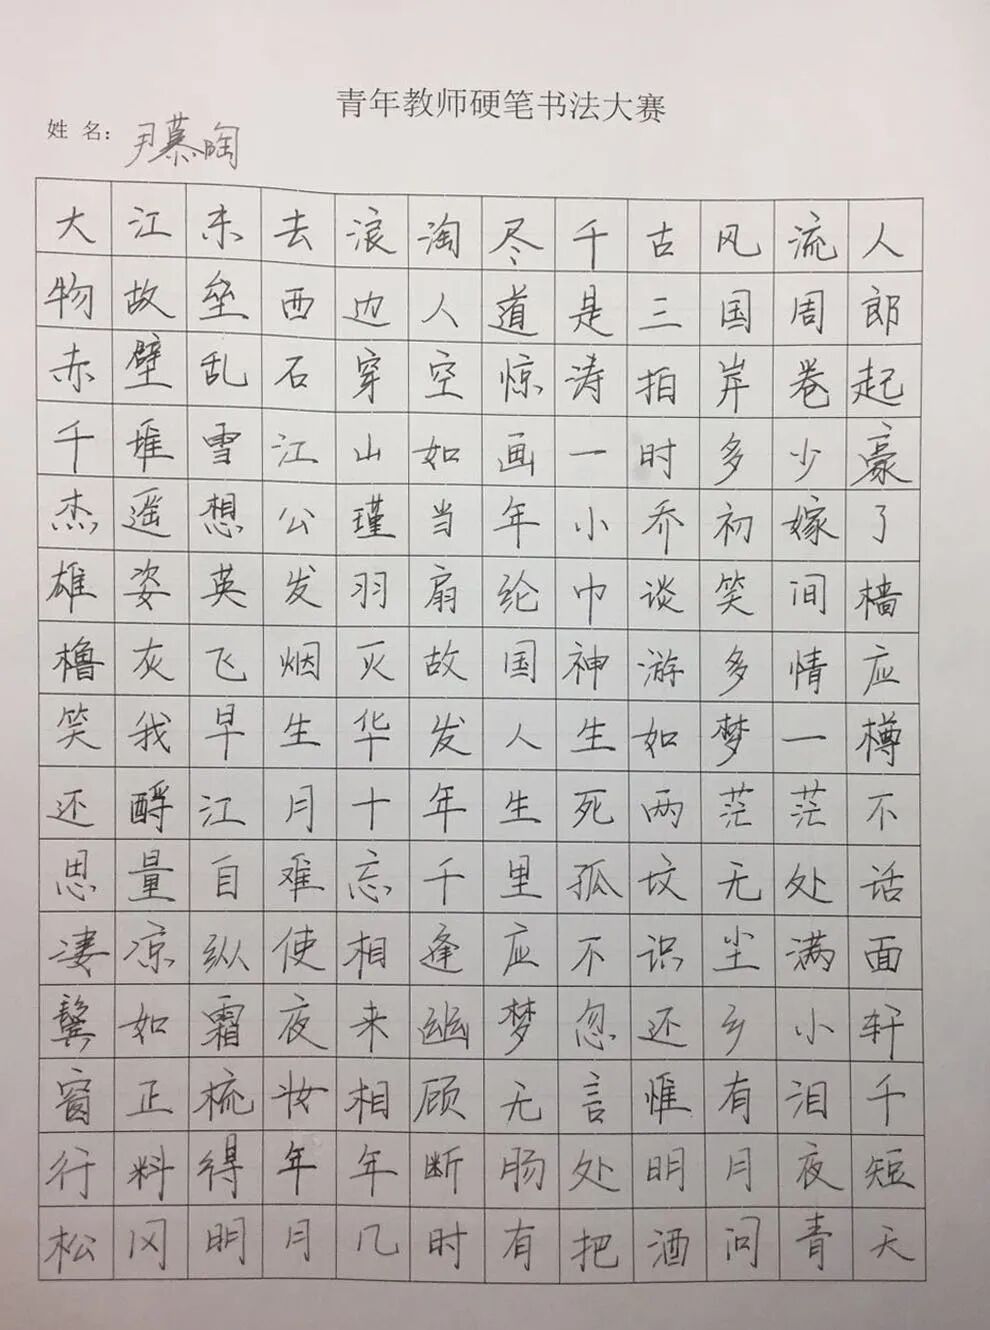 青年教师硬笔书法大赛
姓 名: 尹慕陶
大江东去浪淘尽千古风流人
物故垒西边人道是三国周郎
赤壁乱石穿空惊涛拍岸卷起
千堆雪江山如画一时多少豪
杰遥想公瑾当年小乔初嫁了
雄姿英发羽扇纶巾谈笑间樯
橹灰飞烟灭故国神游多情应
笑我早生华发人生如梦一樽
还酹江月十年生死两茫茫不
思量自难忘千里孤坟无处话
凄凉纵使相逢应不识尘满面
鬓如霜夜来幽梦忽还乡小轩
窗正梳妆相顾无言惟有泪千
行料得年年断肠处明月夜短
松冈明月几时有把酒问青天